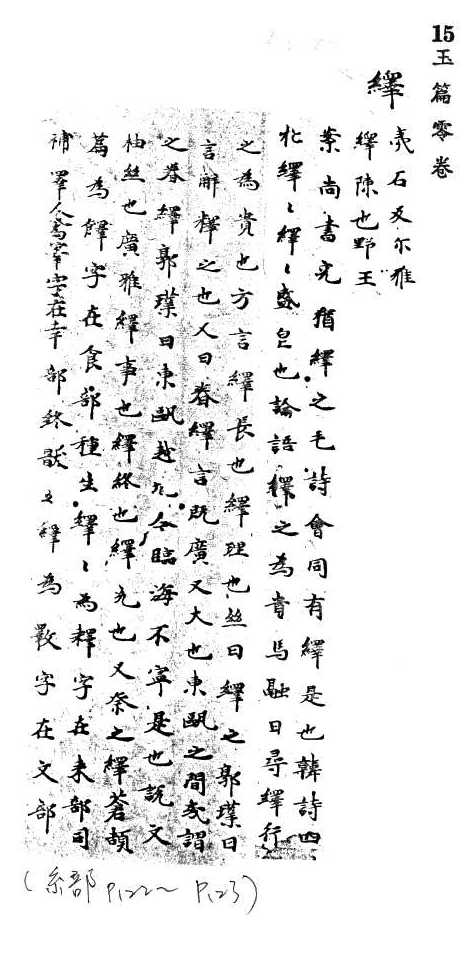 15 玉篇零卷
繹
亦石反尓雅
繹陳也野王
案尚書克猶繹之毛詩會同有繹是也韓詩四
牝繹〻繹〻盛皃也論語繹之為貴馬融曰尋繹行
之為貴也方言繹長也繹理也絲曰繹之郭璞曰
言解釋之也又曰眷繹言既廣又大也東甌之間或謂
之眷繹郭璞曰東甌越九今臨海不寧是也說文
柚絲也廣雅繹事也繹終也繹充也又祭之繹蒼頡
篇為餺字在食部種生繹〻為釋字在耒部司
補睪人為睪字在幸部終猒之繹為斁字在文部
(糸部 P.122~P.123)